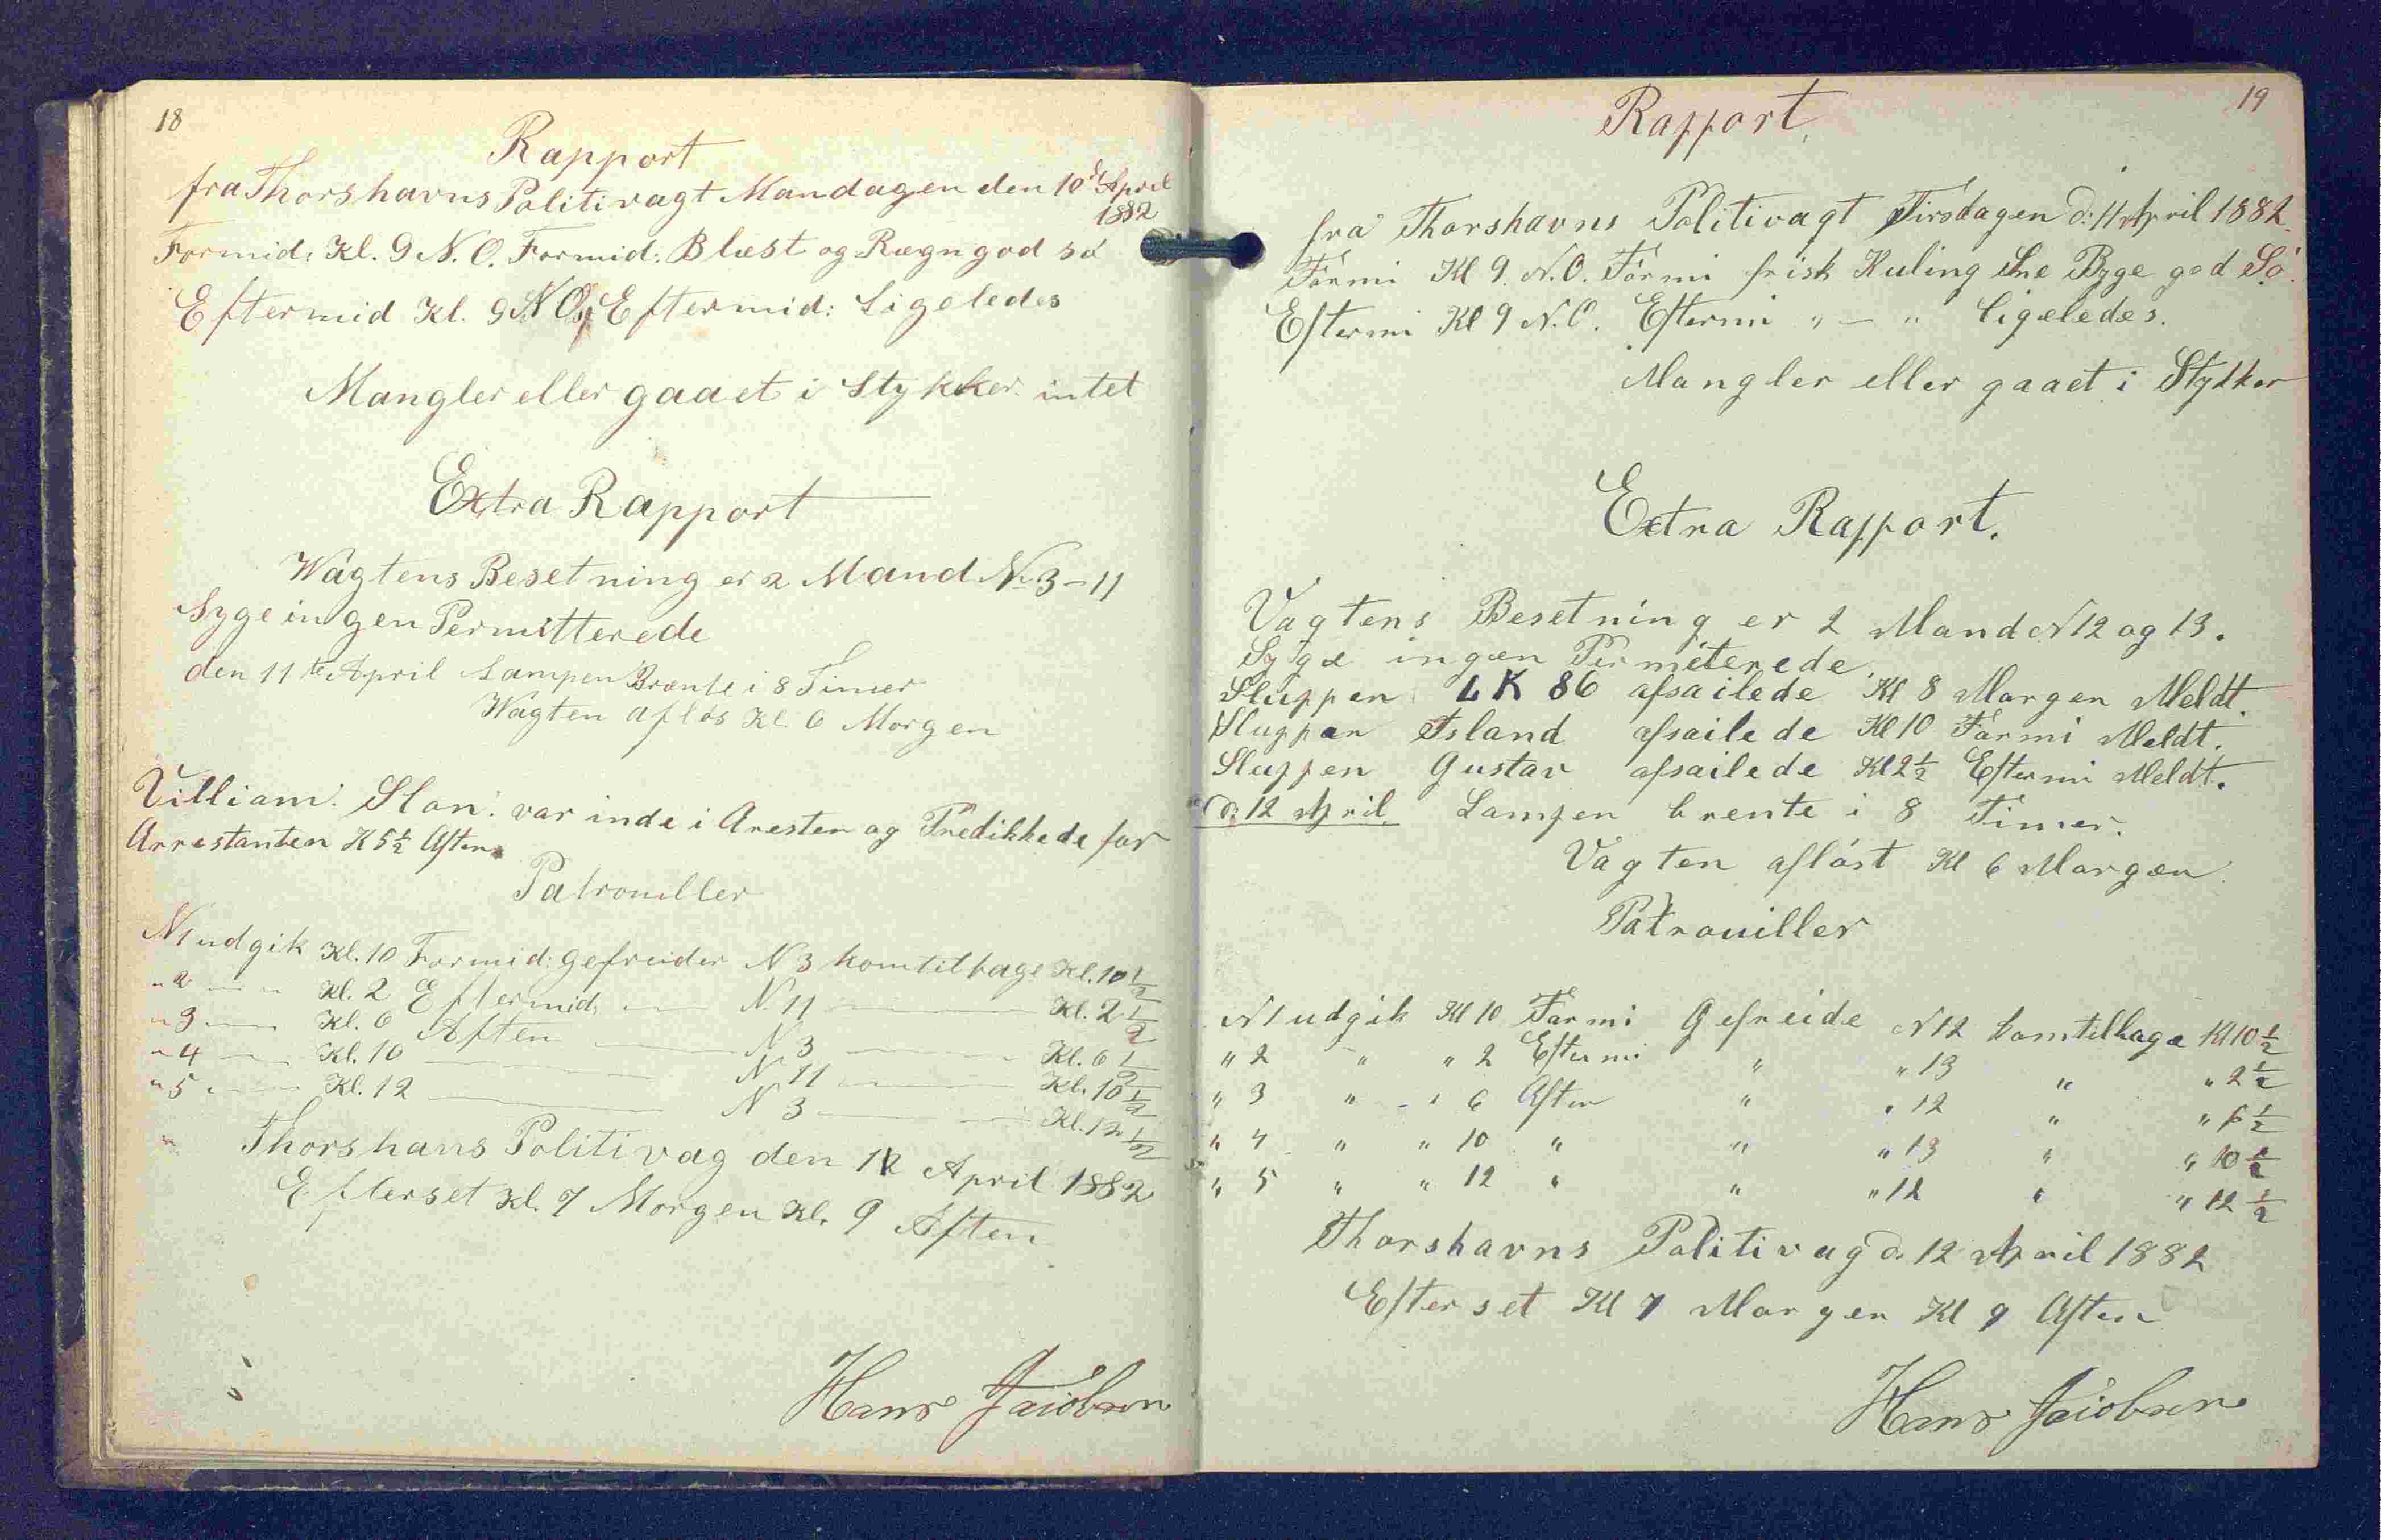 18
Rapport
fra Thorshavns Politivagt Mandagen den 10de April
1882
Formid: Kl. 9 N.O. Formid: Blæst og Rægn god sø
Eftermid Kl. 9 N.O. Eftermid: Ligeledes
Mangler eller gaaet i Stykker intet
Extra Rapport
Wagtens Besetning er 2 Mand No 3-11
Syge ingen Permitterede
den 11te April Lampen Brænte i 8 Timer
Wagten afløs Kl. 6 Morgen
Villiam. Slon. var inde i Aresten og Predikkede for
Arrestanten K 5½ Aften
Patrouiller
N1 udgik Kl. 10 Formid: gefreider N 3 kom tilbage Kl. 10½
" 2 — " Kl. 2 Eftermid, — N. 11 — Kl. 2½
" 3 — Kl. 6 Aften — N 3 — Kl. 6½
" 4 — Kl. 10 — N 11 — Kl. 10½
" 5 — Kl. 12 — N 3 — Kl. 12½
Thorshans Politivag den 12 April 1882
Efterset Kl. 7 Morgen Kl. 9 Aften
Hans Jacobsen
19
Rapport.
fra Thorshavns Politivagt Tirsdagen d: 11 April 1882.
Formi Kl 9. N.O. Formi frisk Kuling Sne Byge god Sø.
Eftermi Kl 9 N.O. Eftermi " — " ligeledes.
Mangler eller gaaet i Stykker
Extra Rapport.
Vagtens Besetning er 2 Mand N 12 og 13.
Syge ingen Permeterede.
Sluppen LK 86 afsailede Kl 8 Morgen Meldt.
Sluppen Island afsailede Kl 10 Formi Meldt.
Sluppen Gustav afsailede Kl 2½ Eftermi Meldt.
d: 12 April. Lampen brente i 8 Timer.
Vagten afløst Kl 6 Morgen
Patrouiller
N 1 udgik Kl 10 Formi Gefreide N 12 kom tilbage Kl 10½
" 2 " " 2 Eftermi " " 13 " " 2½
" 3 " " 6 Aften " " 12 " " 6½
" 4 " " 10 " " " 13 " " 10½
" 5 " " 12 " " " 12 " " 12½
Thorshavns Politivag d. 12 April 1882
Efterset Kl 7 Morgen Kl 9 Aften
Hans Jacobsen